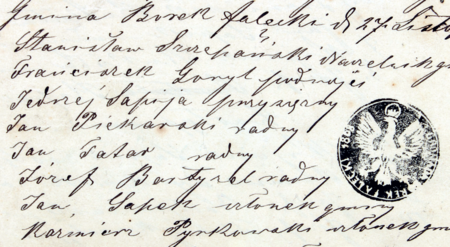 Gmina Borek Fałęcki d. 27. Listo
Stanisław Szczepański Naczelnik g
Franciszek Goryl podwójci
Jędrzej Sapija przysężny
Jan Piekarski radny
Jan Tatar radny
Józef Bartyzel radny
Jan Sapek członek gminy
Kazimierz Pyrkowski członek gm